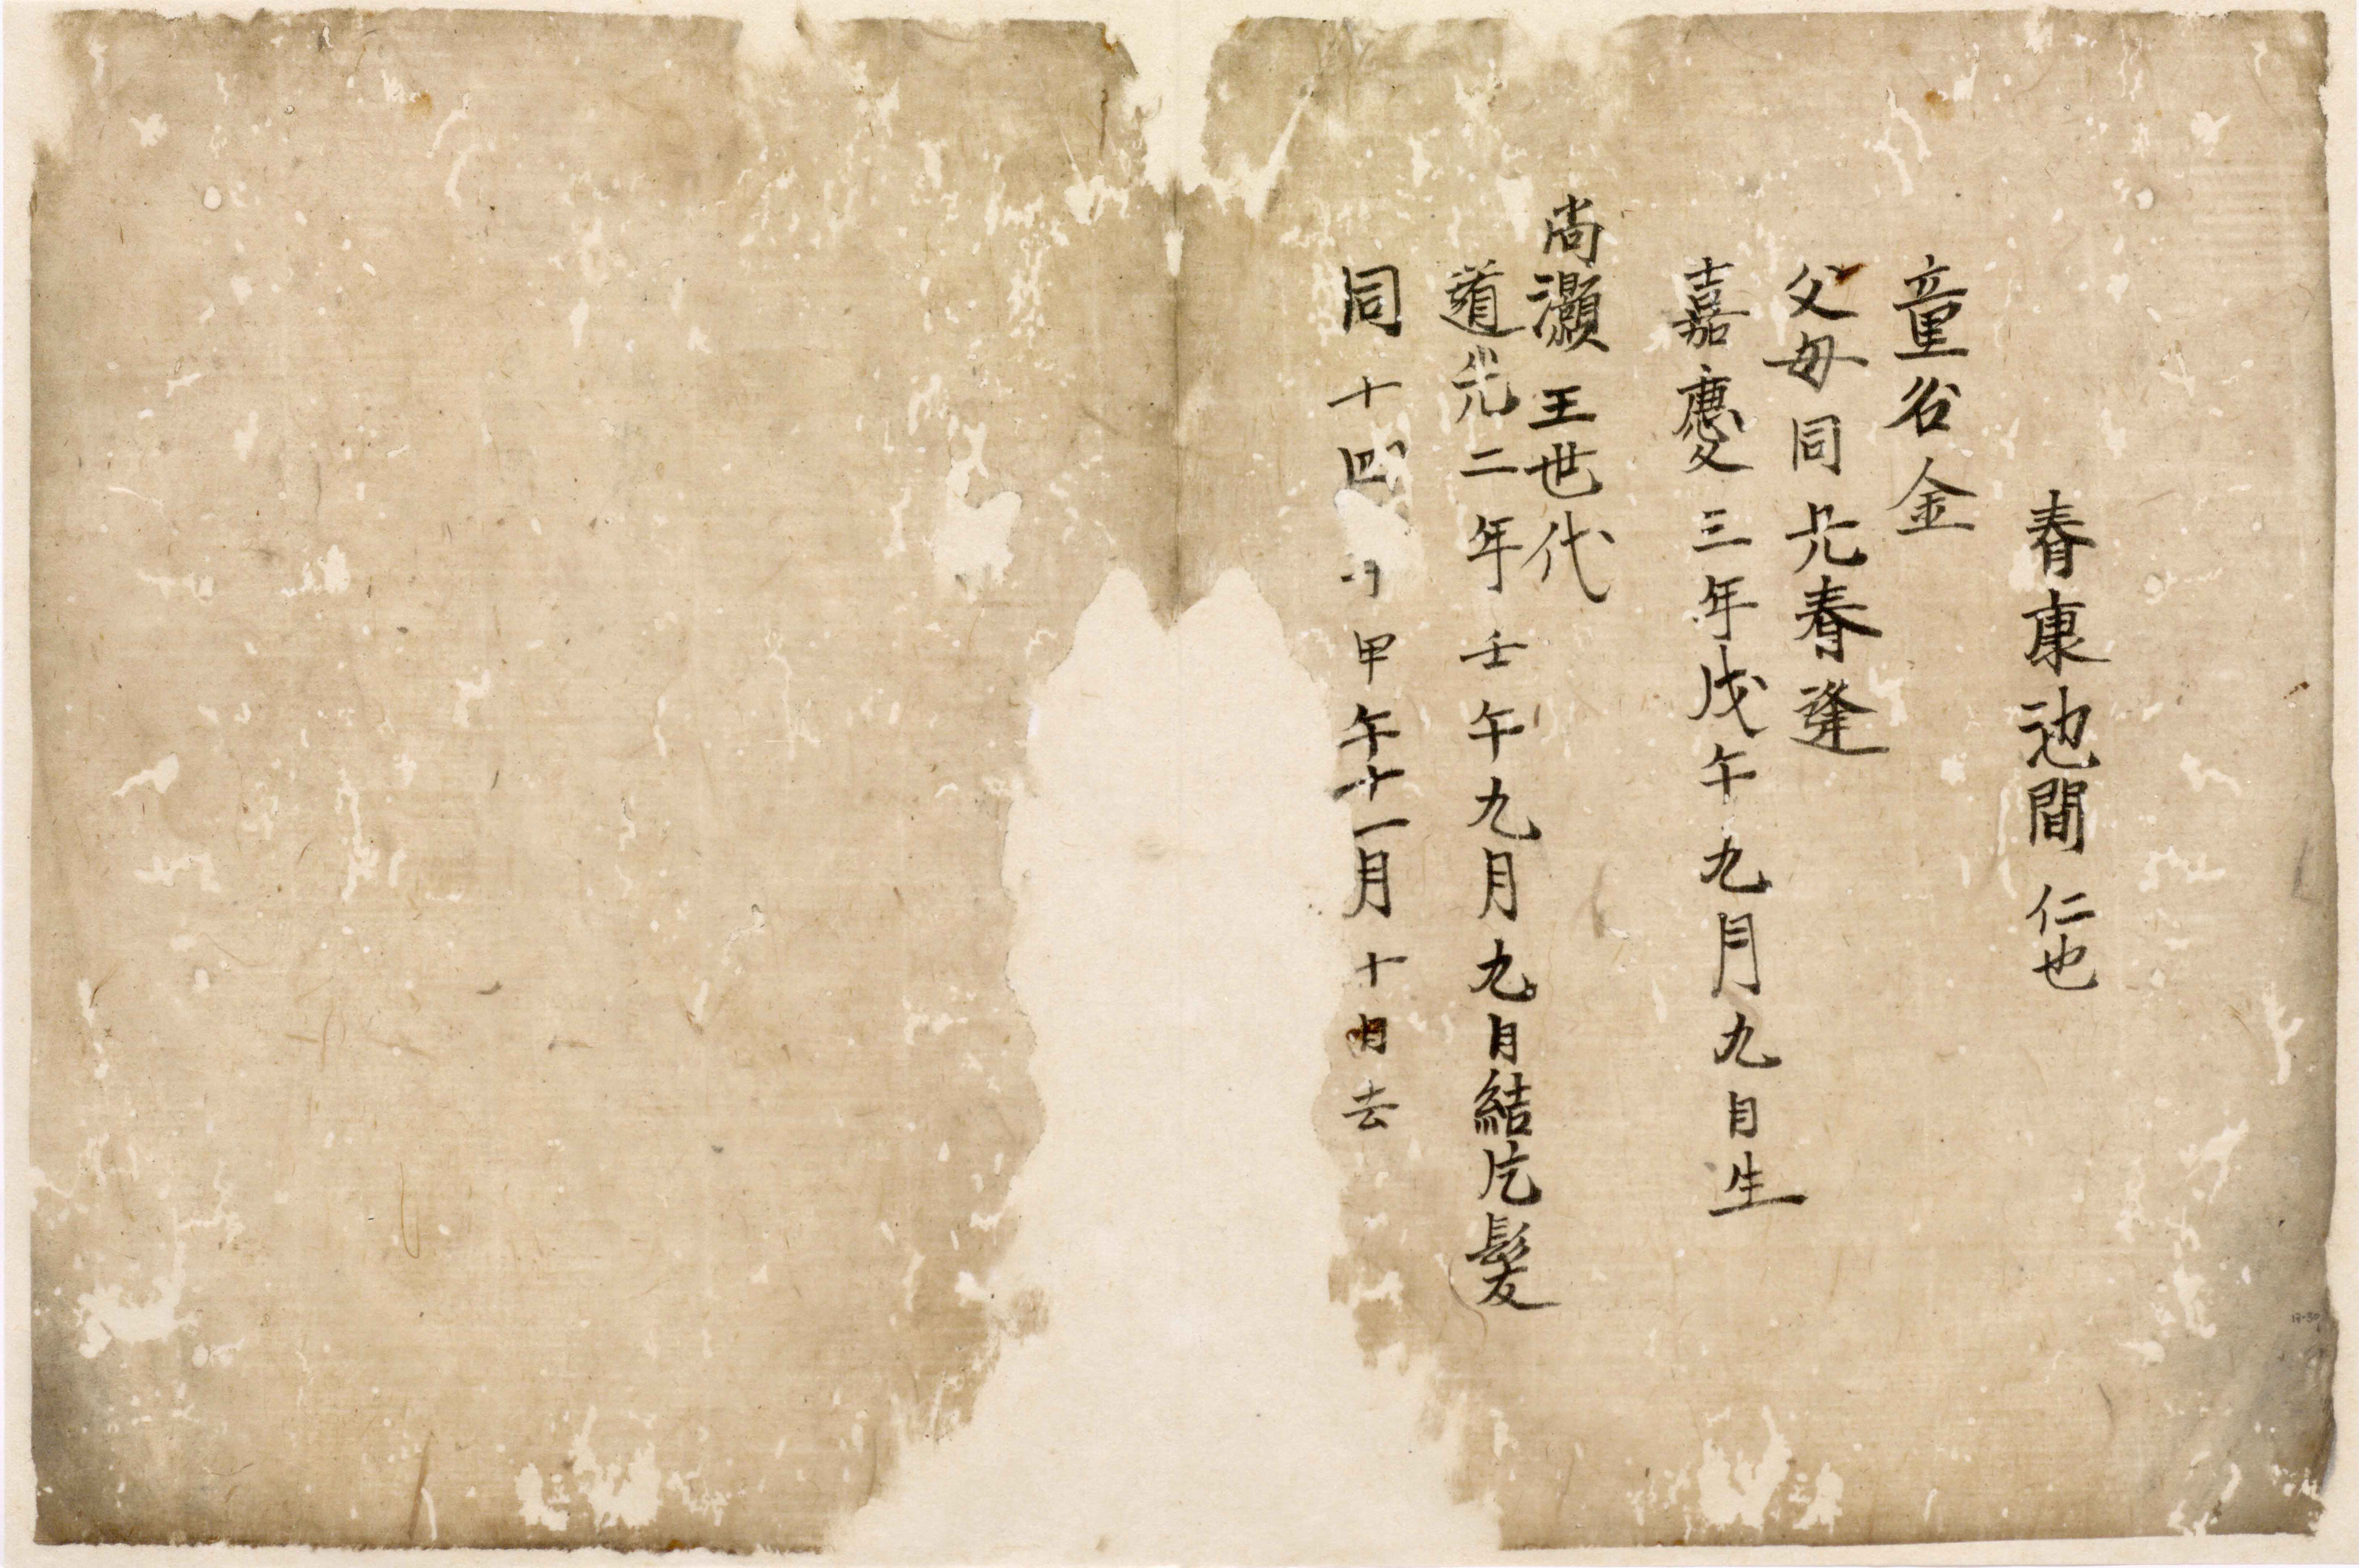 春康池間仁也
童名金
父母同氏春逢
嘉慶三年戊午九月九日生
尚灝王世代
道光二年壬午九月九日結片髪
同十四 甲午十一月十日去